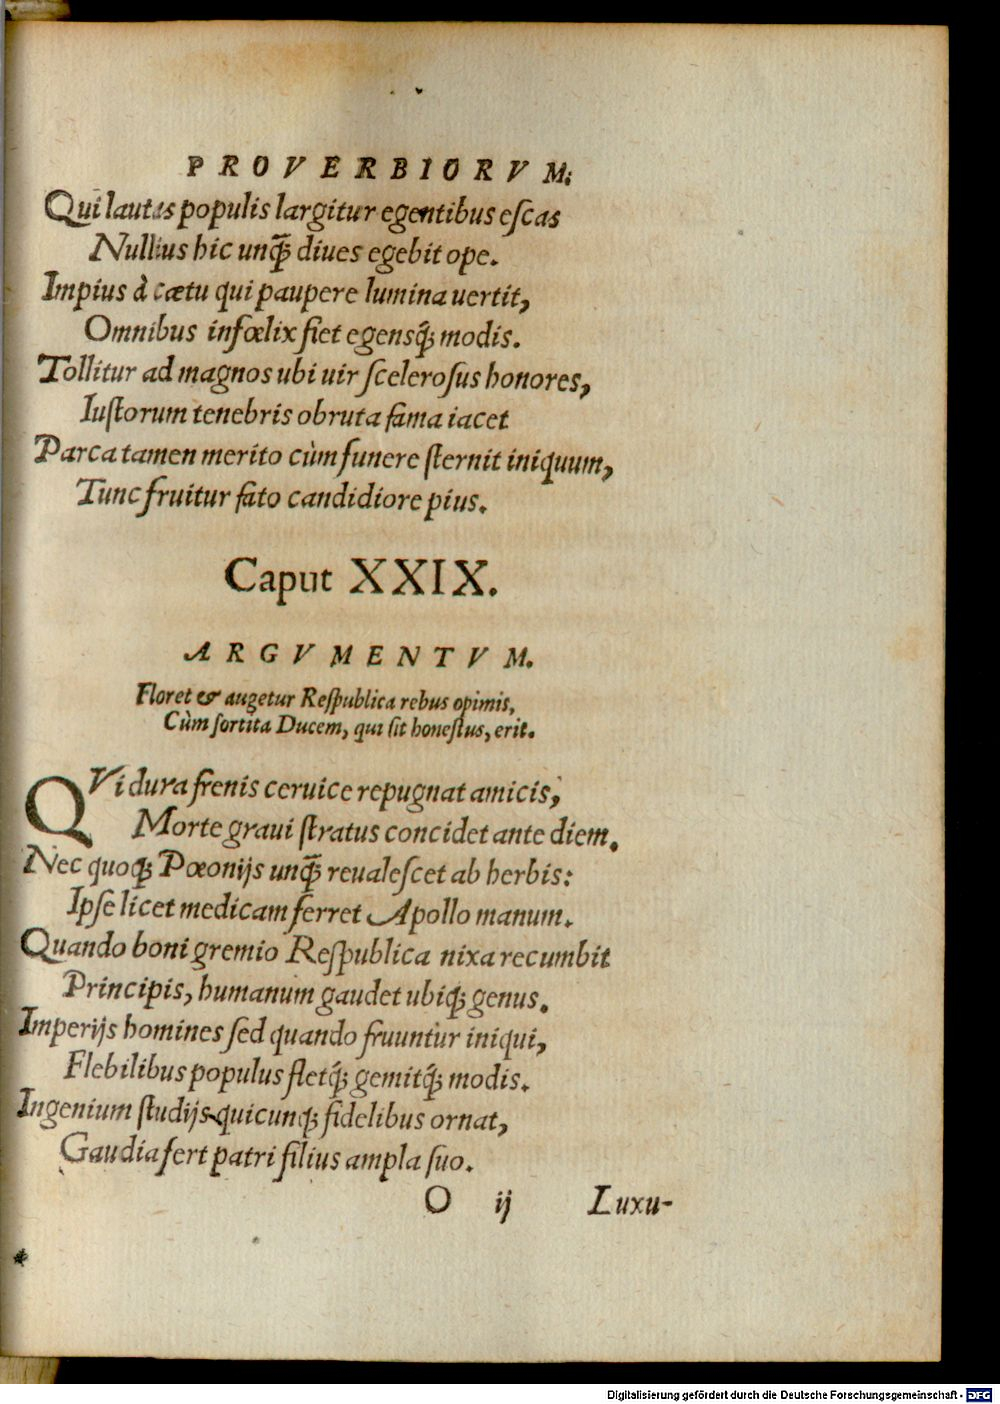 PROVERBIORVM.
Qui lautas populis largitur egentibus eſcas
Nullius hic unq̃ȝ diues egebit ope.
Impius à cætu qui paupere lumina uertit,
Omnibus infœlix fiet egensq́ȝ modis.
Tollitur ad magnos ubi uir ſceleroſus honores,
Iuſtorum tenebris obruta fama iacet
Parca tamen merito cùm funere ſternit iniquum,
Tunc fruitur fato candidiore pius.
Caput XXIX.
ARGVMENTVM.
Floret & augetur Reſpublica rebus opimis,
Cùm ſortita Ducem, qui ſit honeſtus, erit.
QVi dura frenis ceruice repugnat amicis,
Morte graui ſtratus concidet ante diem.
Nec quoqȝ Pœonijs unq̃ȝ reualeſcet ab herbis:
Ipſe licet medicam ferret Apollo manum.
Quando boni gremio Reſpublica nixa recumbit
Principis, humanum gaudet ubiqȝ genus.
Imperijs homines ſed quando fruuntur iniqui,
Flebilibus populus fletq́ȝ gemitq́ȝ modis.
Ingenium ſtudijs quicunqȝ fidelibus ornat,
Gaudia fert patri filius ampla ſuo.
O ij Luxu-
Digitalisierung gefördert durch die Deutsche Forschungsgemeinschaft - DFG